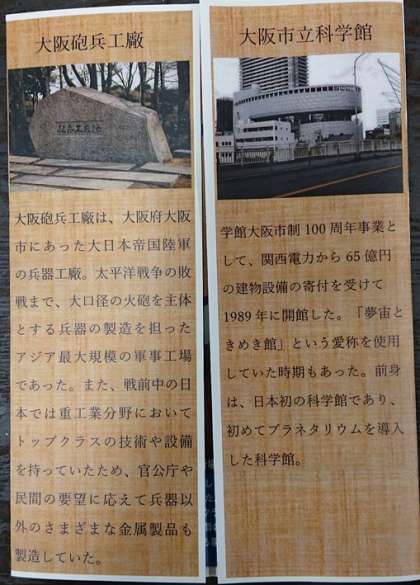 大阪砲兵工廠
大阪砲兵工廠は、大阪府大阪
市にあった大日本帝国陸軍
の兵器工廠。太平洋戦争の敗
戦まで、大口径の火砲を主体
とする兵器の製造を担った
アジア最大規模の軍事工場
であった。また、戦前中の日
本では重工業分野において
トップクラスの技術や設備
を持っていたため、官公庁や
民間の要望に応えて兵器以
外のさまざまな金属製品も
製造していた。
大阪市立科学館
学館大阪市制100周年事業と
して、関西電力から65億円
の建物設備の寄付を受けて
1989年に開館した。「夢宙と
きめき館」という愛称を使用
していた時期もあった。前身
は、日本初の科学館であり、
初めてプラネタリウムを導入
した科学館。